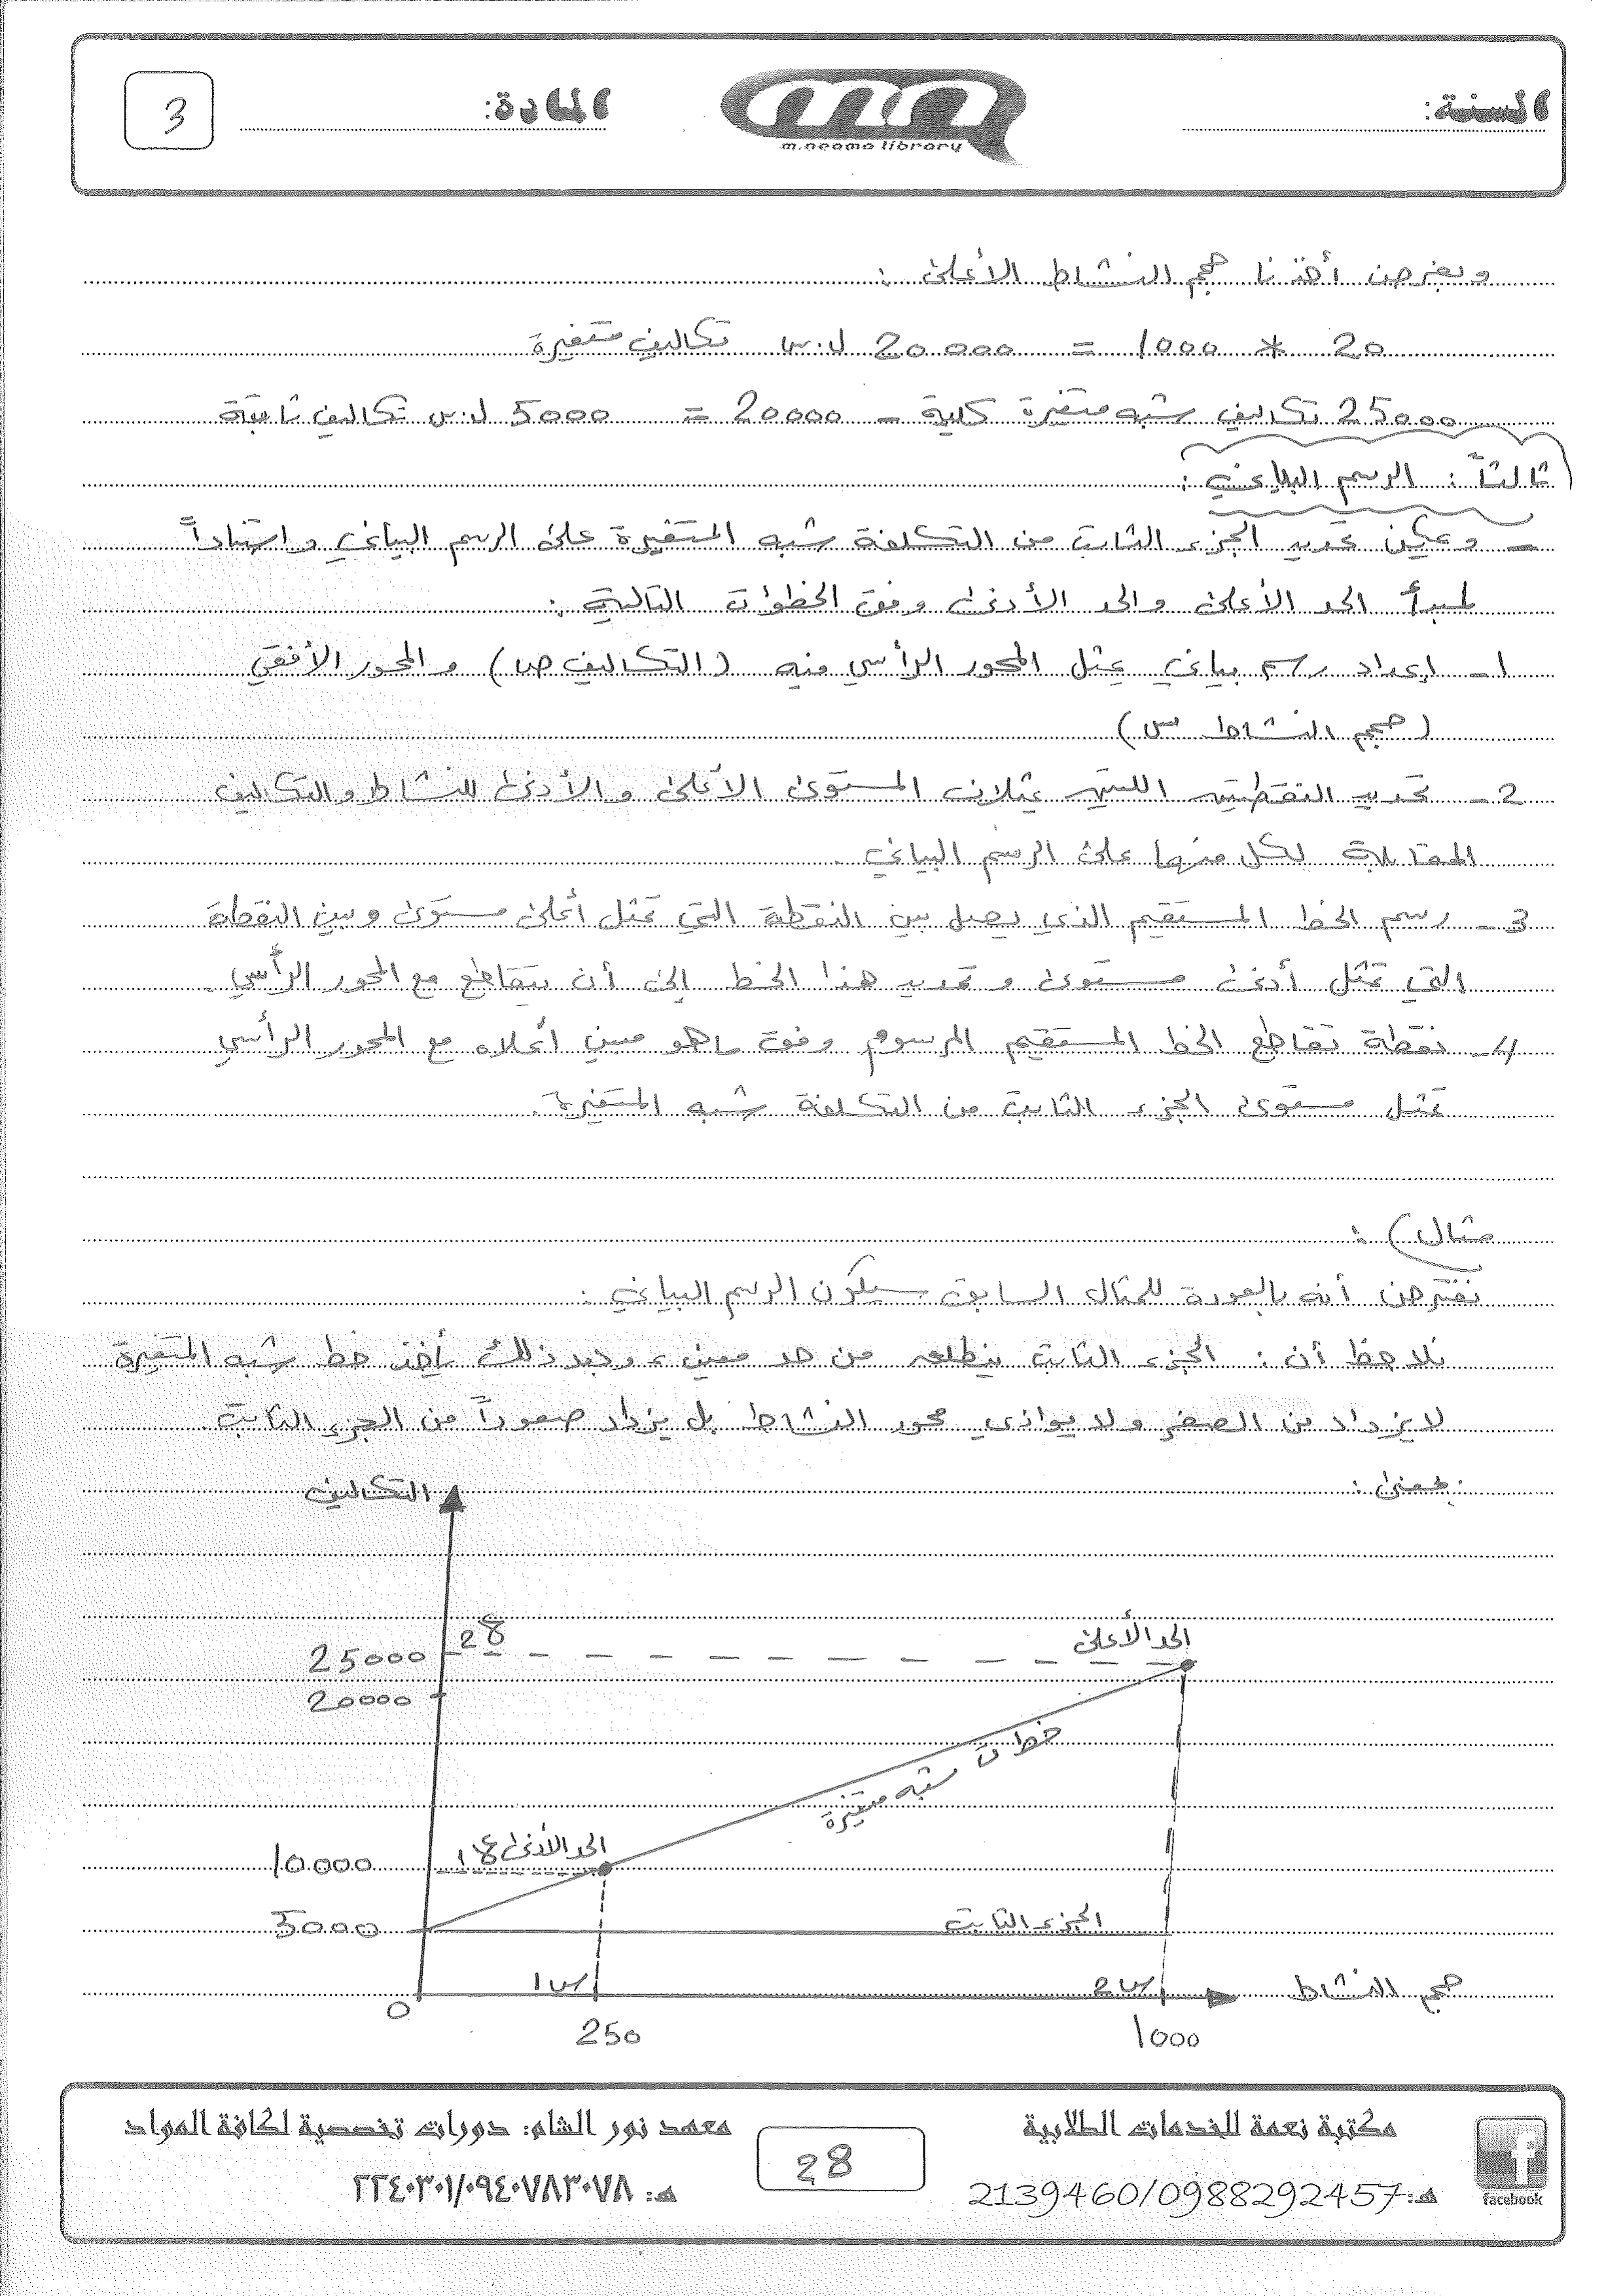 السنة:
المادة:
3
m.neama library
وبفرض أخذنا حجم النشاط الأعلى :
20 * 1000 = 20000 ل.س تكاليف متغيرة
25000 تكاليف شبه متغيرة كلية - 20000 = 5000 ل.س تكاليف ثابتة
ثالثاً : الرسم البياني :
- ويمكن تحديد الجزء الثابت من التكلفة شبه المتغيرة على الرسم البياني واستناداً
لمبدأ الحد الأعلى والحد الأدنى وفق الخطوات التالية :
1- إعداد رسم بياني يمثل المحور الرأسي منه (التكاليف ص) والمحور الأفقي
(حجم النشاط س)
2- تحديد النقطتين اللتين يمثلان المستوى الأعلى والأدنى للنشاط والتكاليف
المقابلة لكل منها على الرسم البياني .
3- رسم الخط المستقيم الذي يصل بين النقطة التي تمثل أعلى مستوى وبين النقطة
التي تمثل أدنى مستوى وتمديد هذا الخط إلى أن يتقاطع مع المحور الرأسي .
4- نقطة تقاطع الخط المستقيم المرسوم وفق ماهو مبين أعلاه مع المحور الرأسي
تمثل مستوى الجزء الثابت من التكلفة شبه المتغيرة .
مثال) :
نفترض أنه بالعودة للمثال السابق سيكون الرسم البياني :
نلاحظ أن : الجزء الثابت ينطلق من حد معين ، وبعد ذلك يأخذ خط شبه المتغيرة
لا يزداد من الصفر ولا يوازي محور النشاط بل يزداد صعوداً من الجزء الثابت .
بمعنى :
التكاليف
الحد الأعلى
25000
20000
خط ت شبه متغيرة
الحد الأدنى
10000
الجزء الثابت
5000
س1
س2
حجم النشاط
0
250
1000
مكتبة نعمة للخدمات الطلابية
هـ: 2139460/0988292457
facebook
28
معهد نور الشام: دورات تخصصية لكافة المواد
هـ: ٢٢٤٠٣٠١/٠٩٤٠٧٨٣٠٧٨